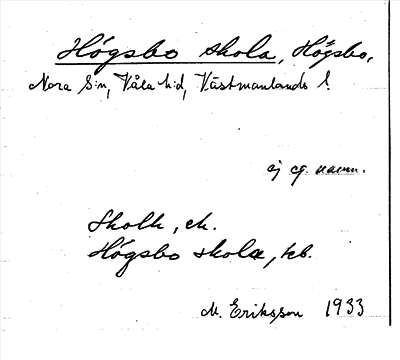 Högsbo skola, Högsbo,
Nora S:n, Våla h:d, Västmanlands l.
ej eg. namn.
Skolh, ek.
Högsbo skola, kb.
M. Eriksson 1933